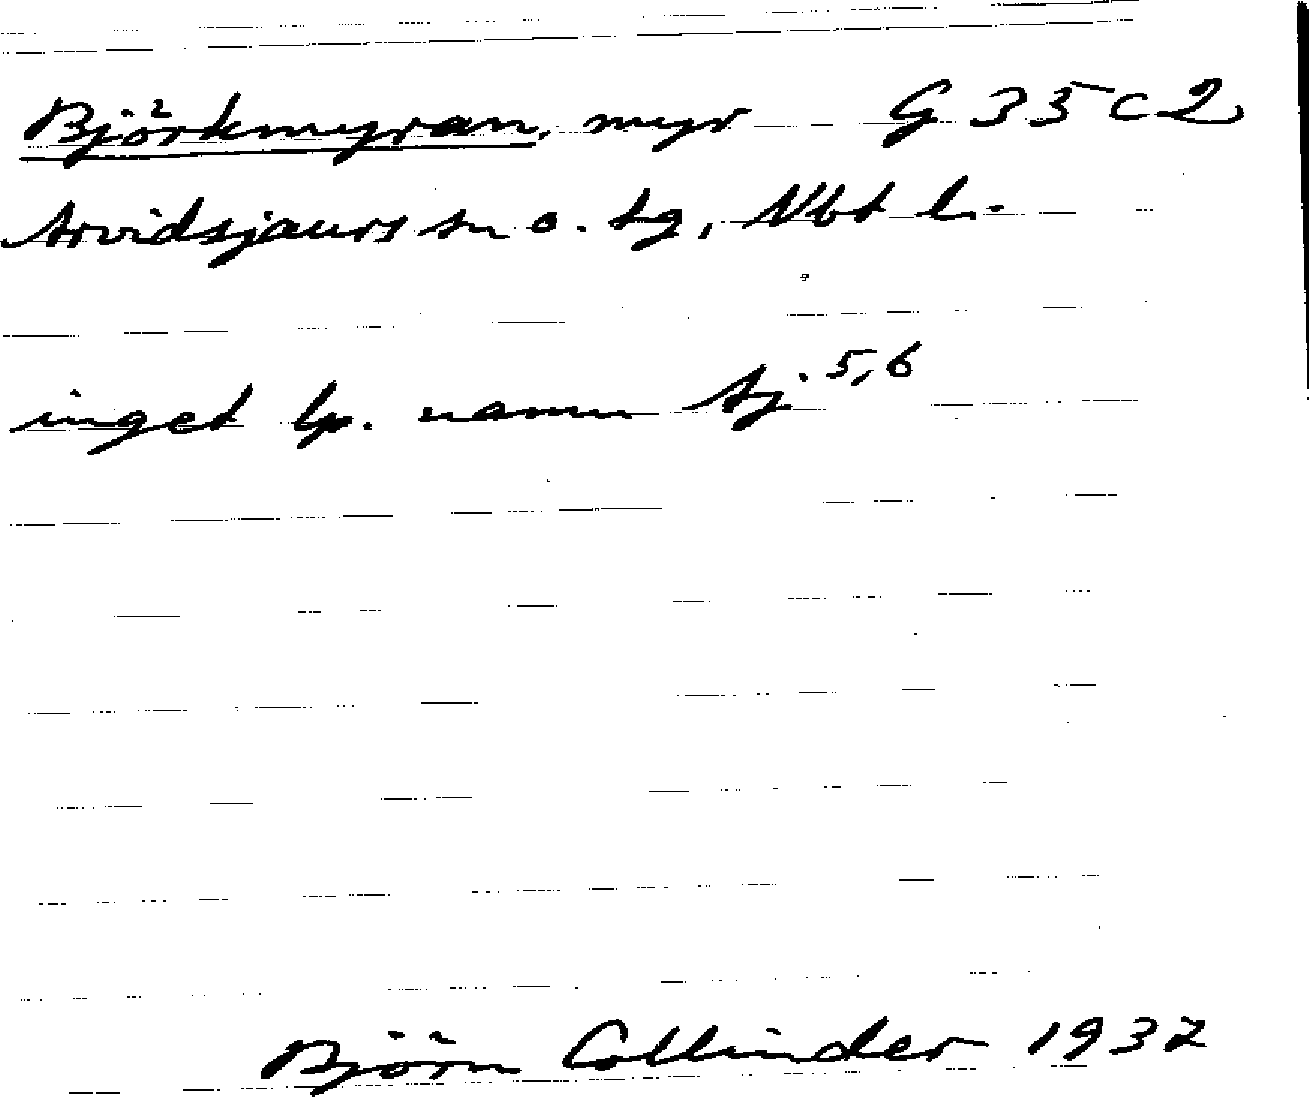 Björkmyran, myr G 35 c 2
Arvidsjaurs sn o. tg, Nbt l.
inget lp. namn Aj. 5,6
Björn Collinder 1932